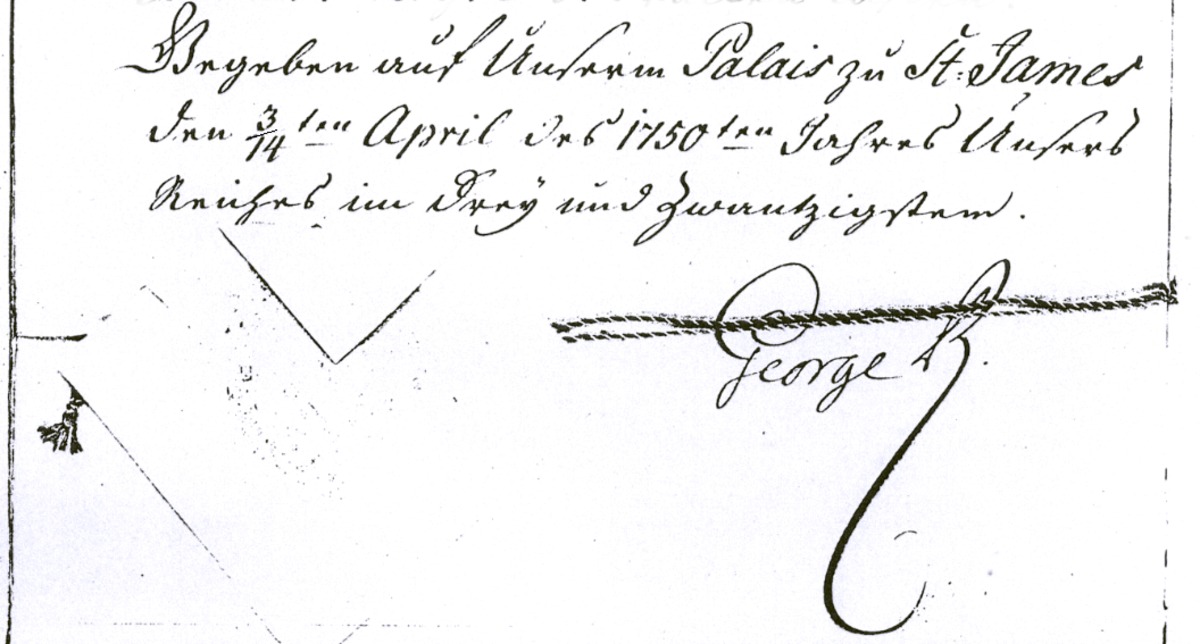 Gegeben auf Unserm Palais zu St: James
den 3/14ten April des 1750ten Jahres Unsers
Reiches im Drey und Zwantzigstem.
George R.